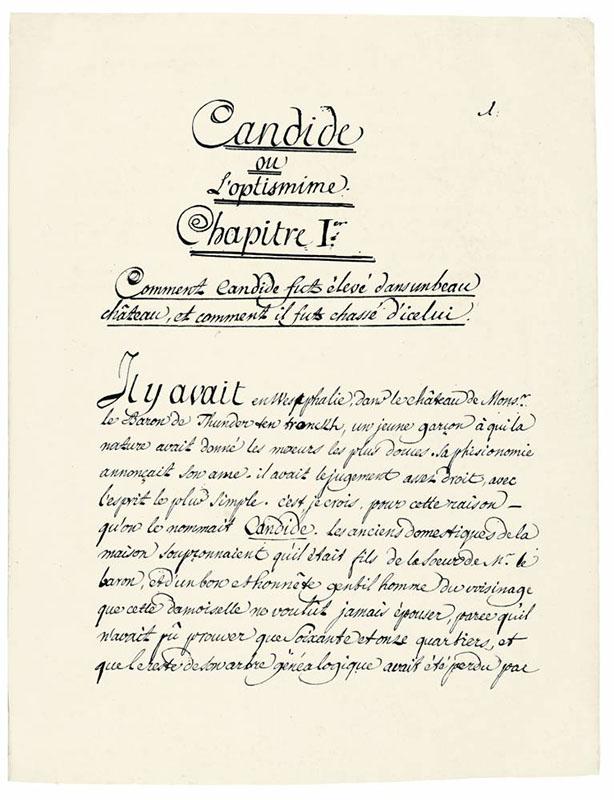 1.
Candide
ou
L'optismime.
Chapitre I.er
Comment Candide fut élevé dans un beau
château, et comment il fut chassé d'icelui.
Il y avait en Westphalie, dans le château de Mons.r
le Baron de Thunder ten tronckh, un jeune garçon à qui la
nature avait donné les mœurs les plus douces. sa phisionomie
annonçait son ame. il avait le jugement assez droit, avec
l'esprit le plus simple. c'est, je crois, pour cette raison –
qu'on le nommait Candide. les anciens domestiques de la
maison soupçonnaient qu'il était fils de la Soeur de M.r le
baron, et d'un bon et honnête gentil homme du voisinage
que cette damoiselle ne voulut jamais épouser, parce qu'il
n'avait pû prouver que Soixante et onze quartiers, et
que le reste de son arbre généalogique avait été perdu par